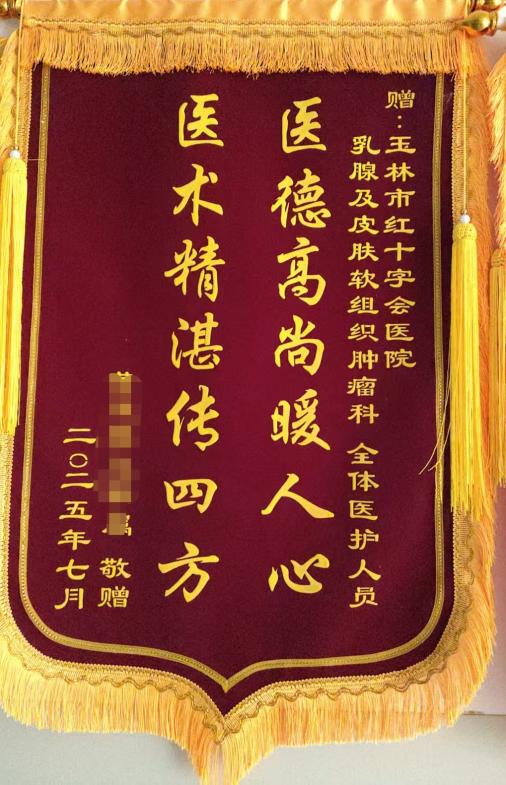 赠：玉林市红十字会医院
乳腺及皮肤软组织肿瘤科 全体医护人员
医德高尚暖人心
医术精湛传四方
敬赠
二〇二五年七月